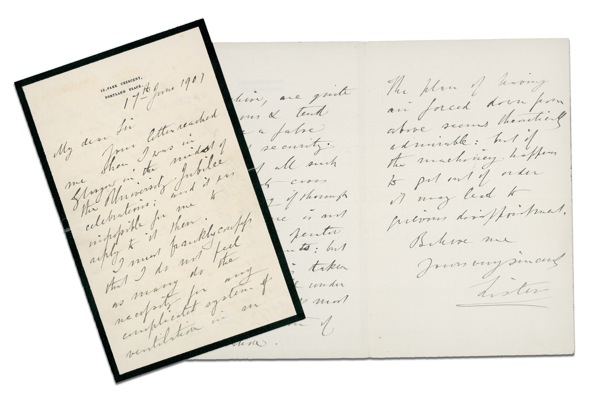 12, PARK CRESCENT,
PORTLAND PLACE.
17th June 1901
My dear Sir
Your letter reached
me when I was in
Glasgow in the midst of
the University Jubilee
celebrations; and it was
impossible for me to
reply to it then.
I must frankly confess
that I do not feel
as many do the
necessity for any
complicated system of
ventilation in an
are quite
& tend
a false
security.
of all such
cross
of thorough
is not
but
taken
under
most
of
The plan of having
air forced down from
above seems theoretically
admirable: but if
the machinery happens
to get out of order
it may lead to
grievous disappointment.
Believe me
Yours very sincerely
Lister